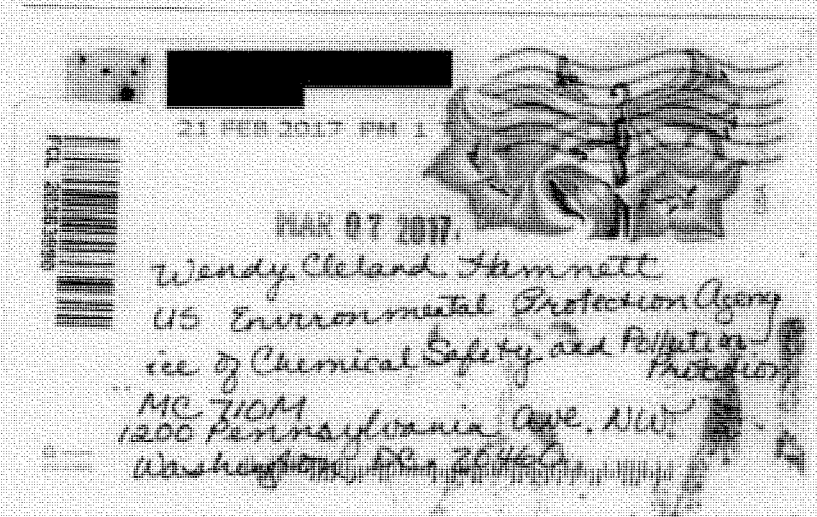 21 FEB 2017 PM 1
MAR 07 2017
Wendy Cleland Hamnett
US Environmental Protection Agency
ice of Chemical Safety and Pollution
Protection
MC 710M
1200 Pennsylvania Ave. NW.
Washington, DC. 20460